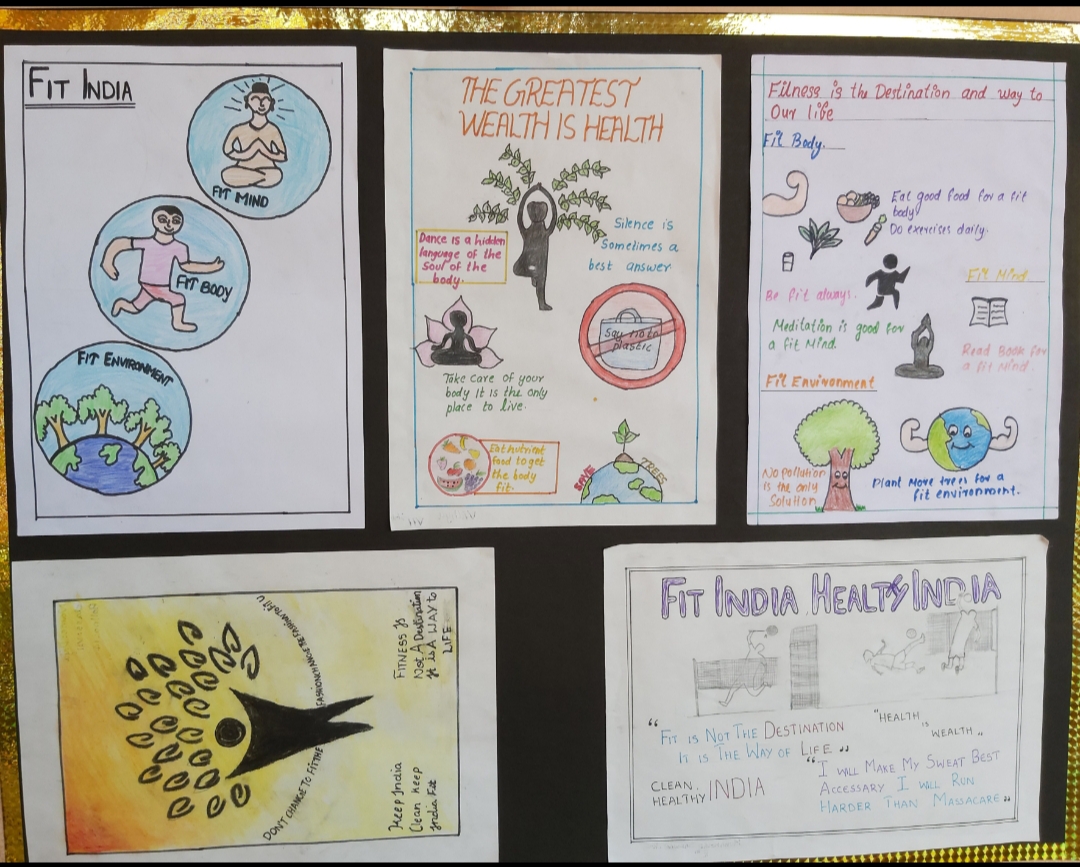 FIT INDIA
FIT MIND
FIT BODY
FIT ENVIRONMENT
THE GREATEST
WEALTH IS HEALTH
Dance is a hidden
language of the
Soul of the
body.
Silence is
Sometimes a
best answer
Say no to
plastic
Take care of your
body It is the only
place to live.
Eat nutrient
food to get
the body
fit.
SAVE TREES
Fitness is the Destination and way to
Our life
Fit Body.
Eat good food for a fit
body
Do exercises daily.
Fit Mind
Be fit always.
Meditation is good for
a fit Mind.
Read Book for
a fit Mind.
Fit Environment
No Pollution
is the only
Solution
Plant More trees for a
fit environment.
DON'T CHANGE TO FIT THE FASHION CHANGE THE FASHION TO FIT U
FITNESS Is
Not A Destination
It is A WAY to
LIFE
Keep India
Clean keep
India Fit
FIT INDIA HEALTY INDIA
“FIT IS NOT THE DESTINATION
IT IS THE WAY OF LIFE”
"HEALTH
IS
WEALTH„
CLEAN.
HEALTHY INDIA
“I WILL MAKE MY SWEAT BEST
ACCESSARY I WILL RUN
HARDER THAN MASSACARE„